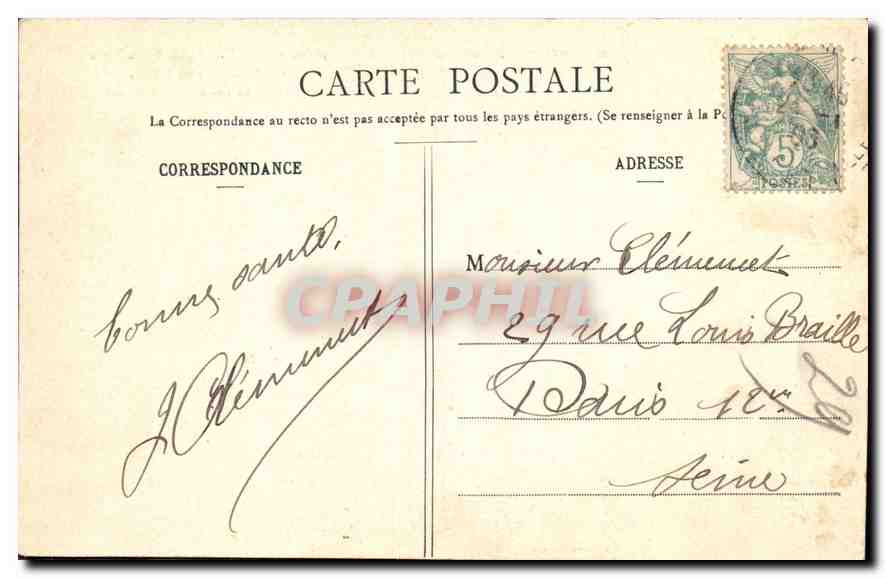 CARTE POSTALE
La Correspondance au recto n'est pas acceptée par tous les pays étrangers. (Se renseigner à la Po
CORRESPONDANCE
ADRESSE
bonne santé,
J Clémencet
Monsieur Clémencet
29 rue Louis Braille
Paris 12me
Seine
5
POSTES
CPAPHIL